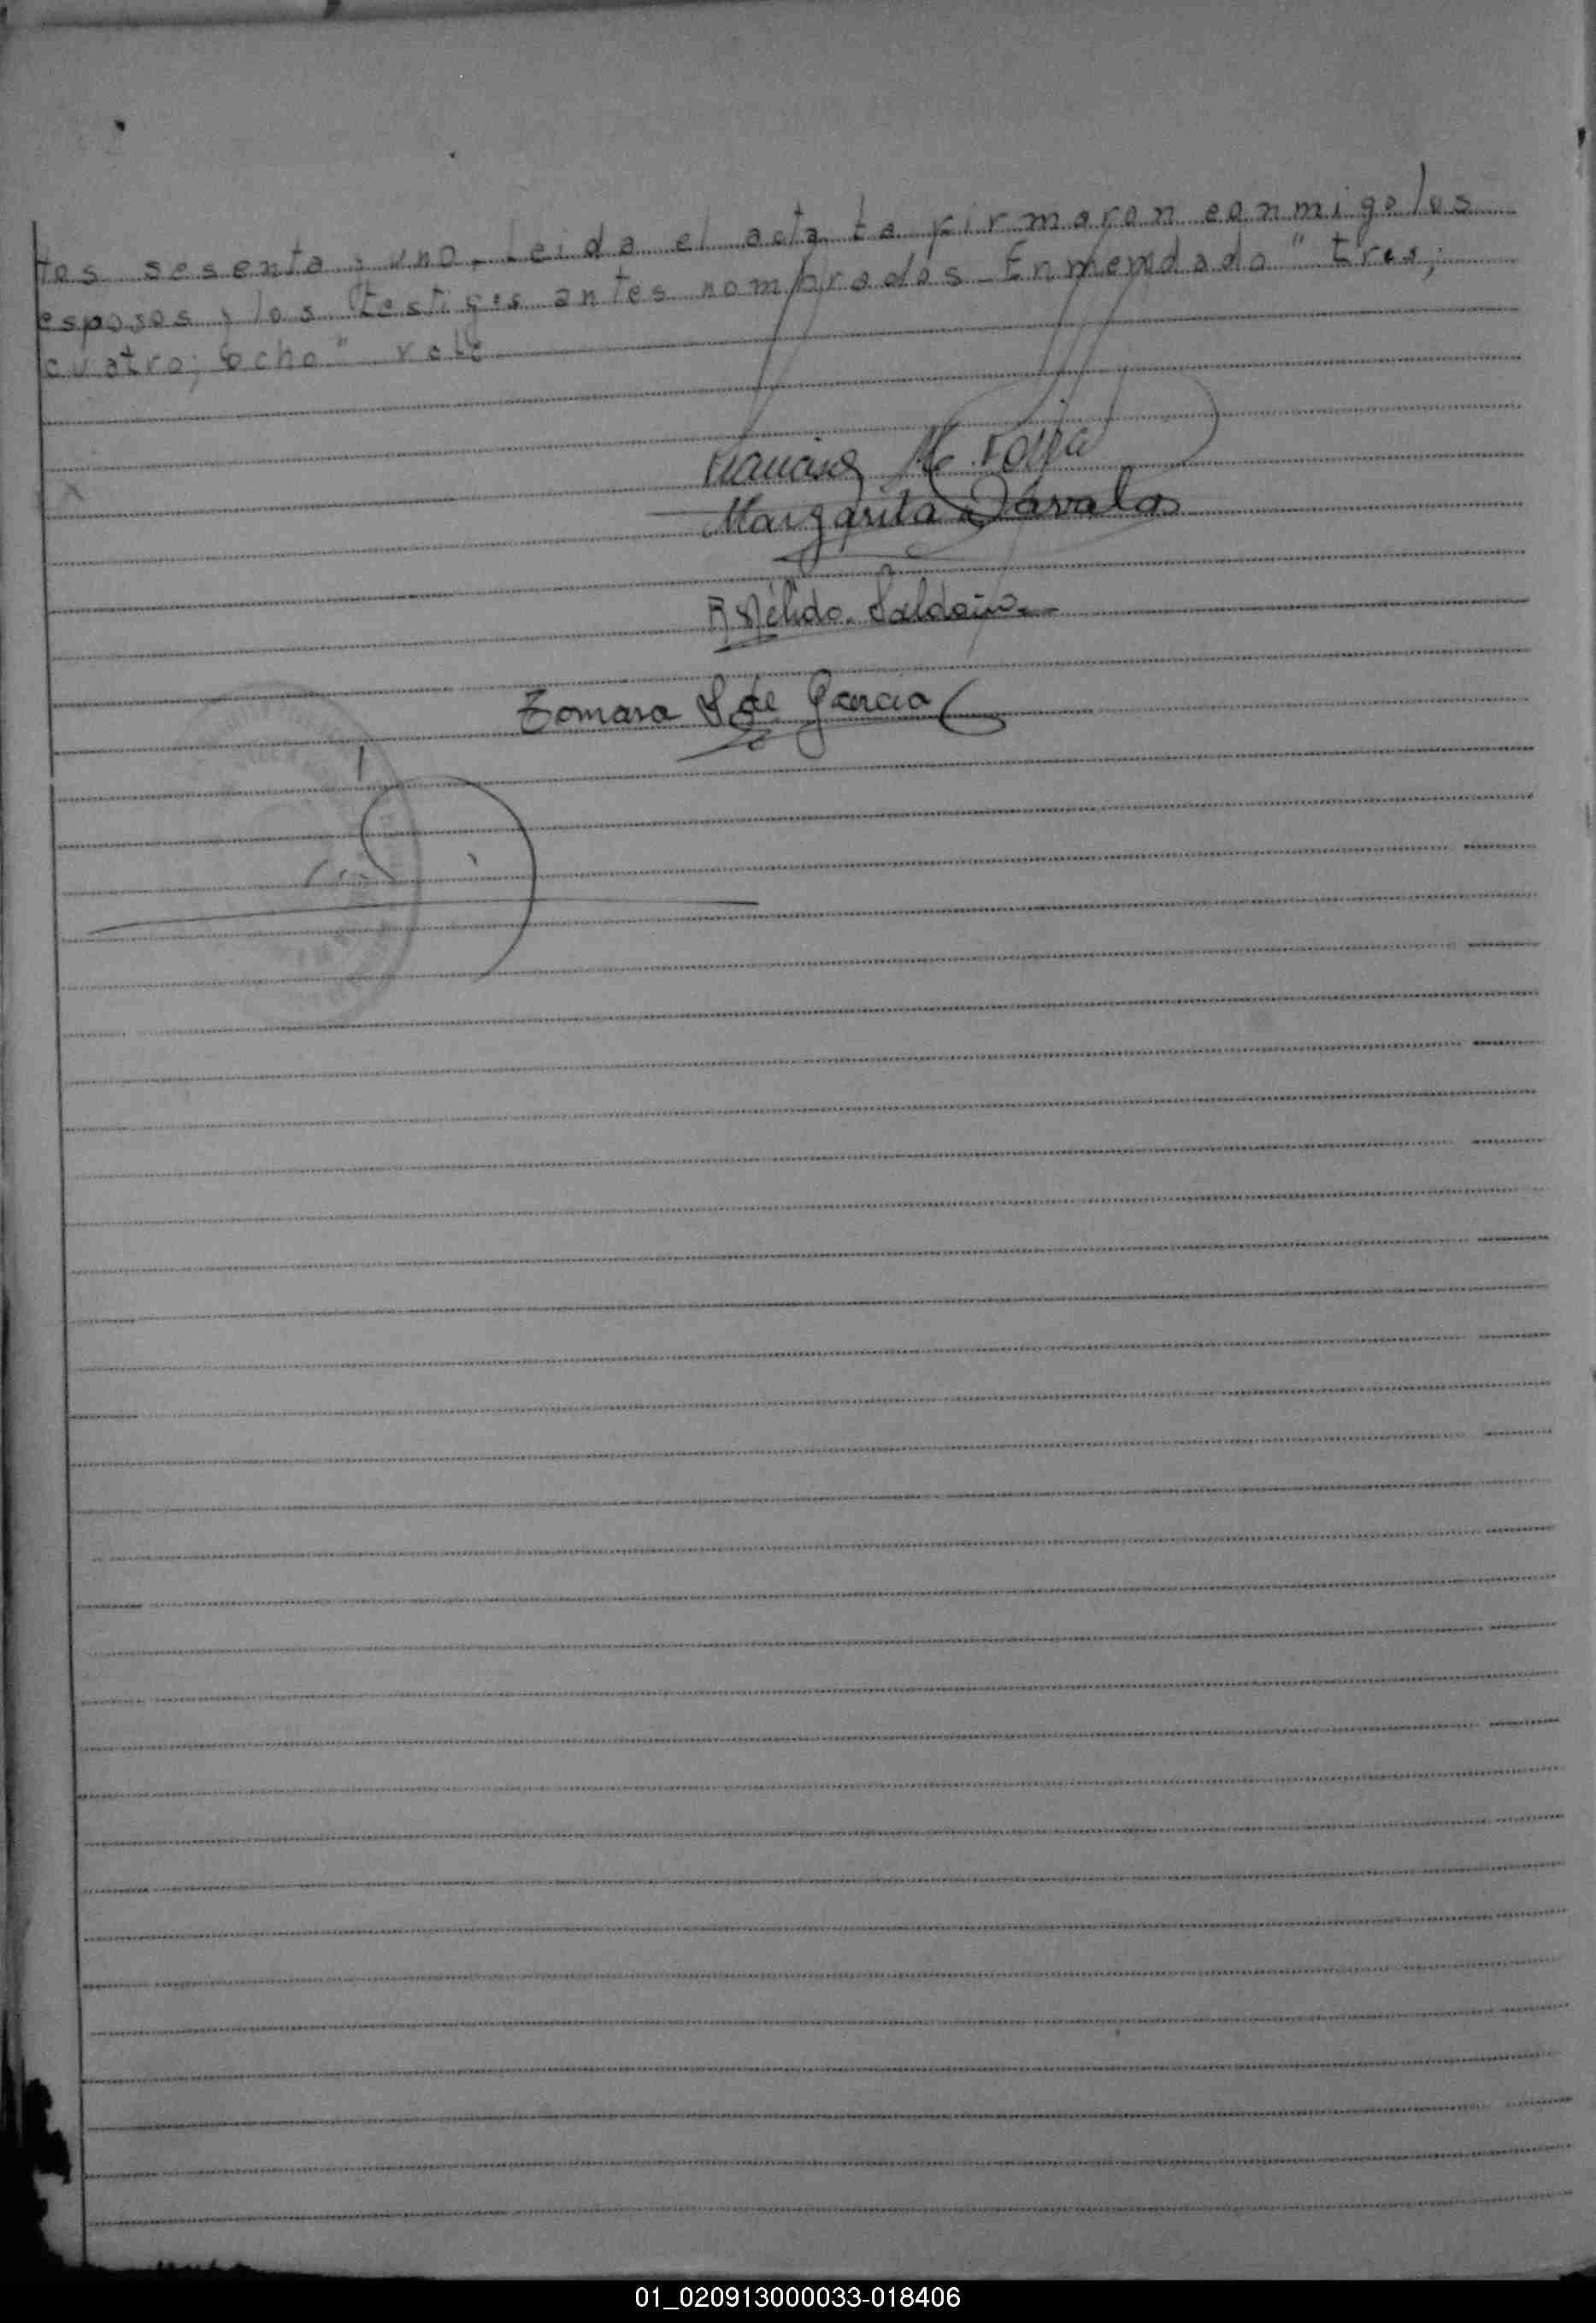 tos sesenta y uno. Leida el acta la firmaron conmigo los
esposos y los testigos antes nombrados - Enmendado "tres;
cuatro; ocho" vale
Francisco
Margarita Dávalos
Nélida Saldaño
Tomasa S. de Garcia
01_020913000033-018406